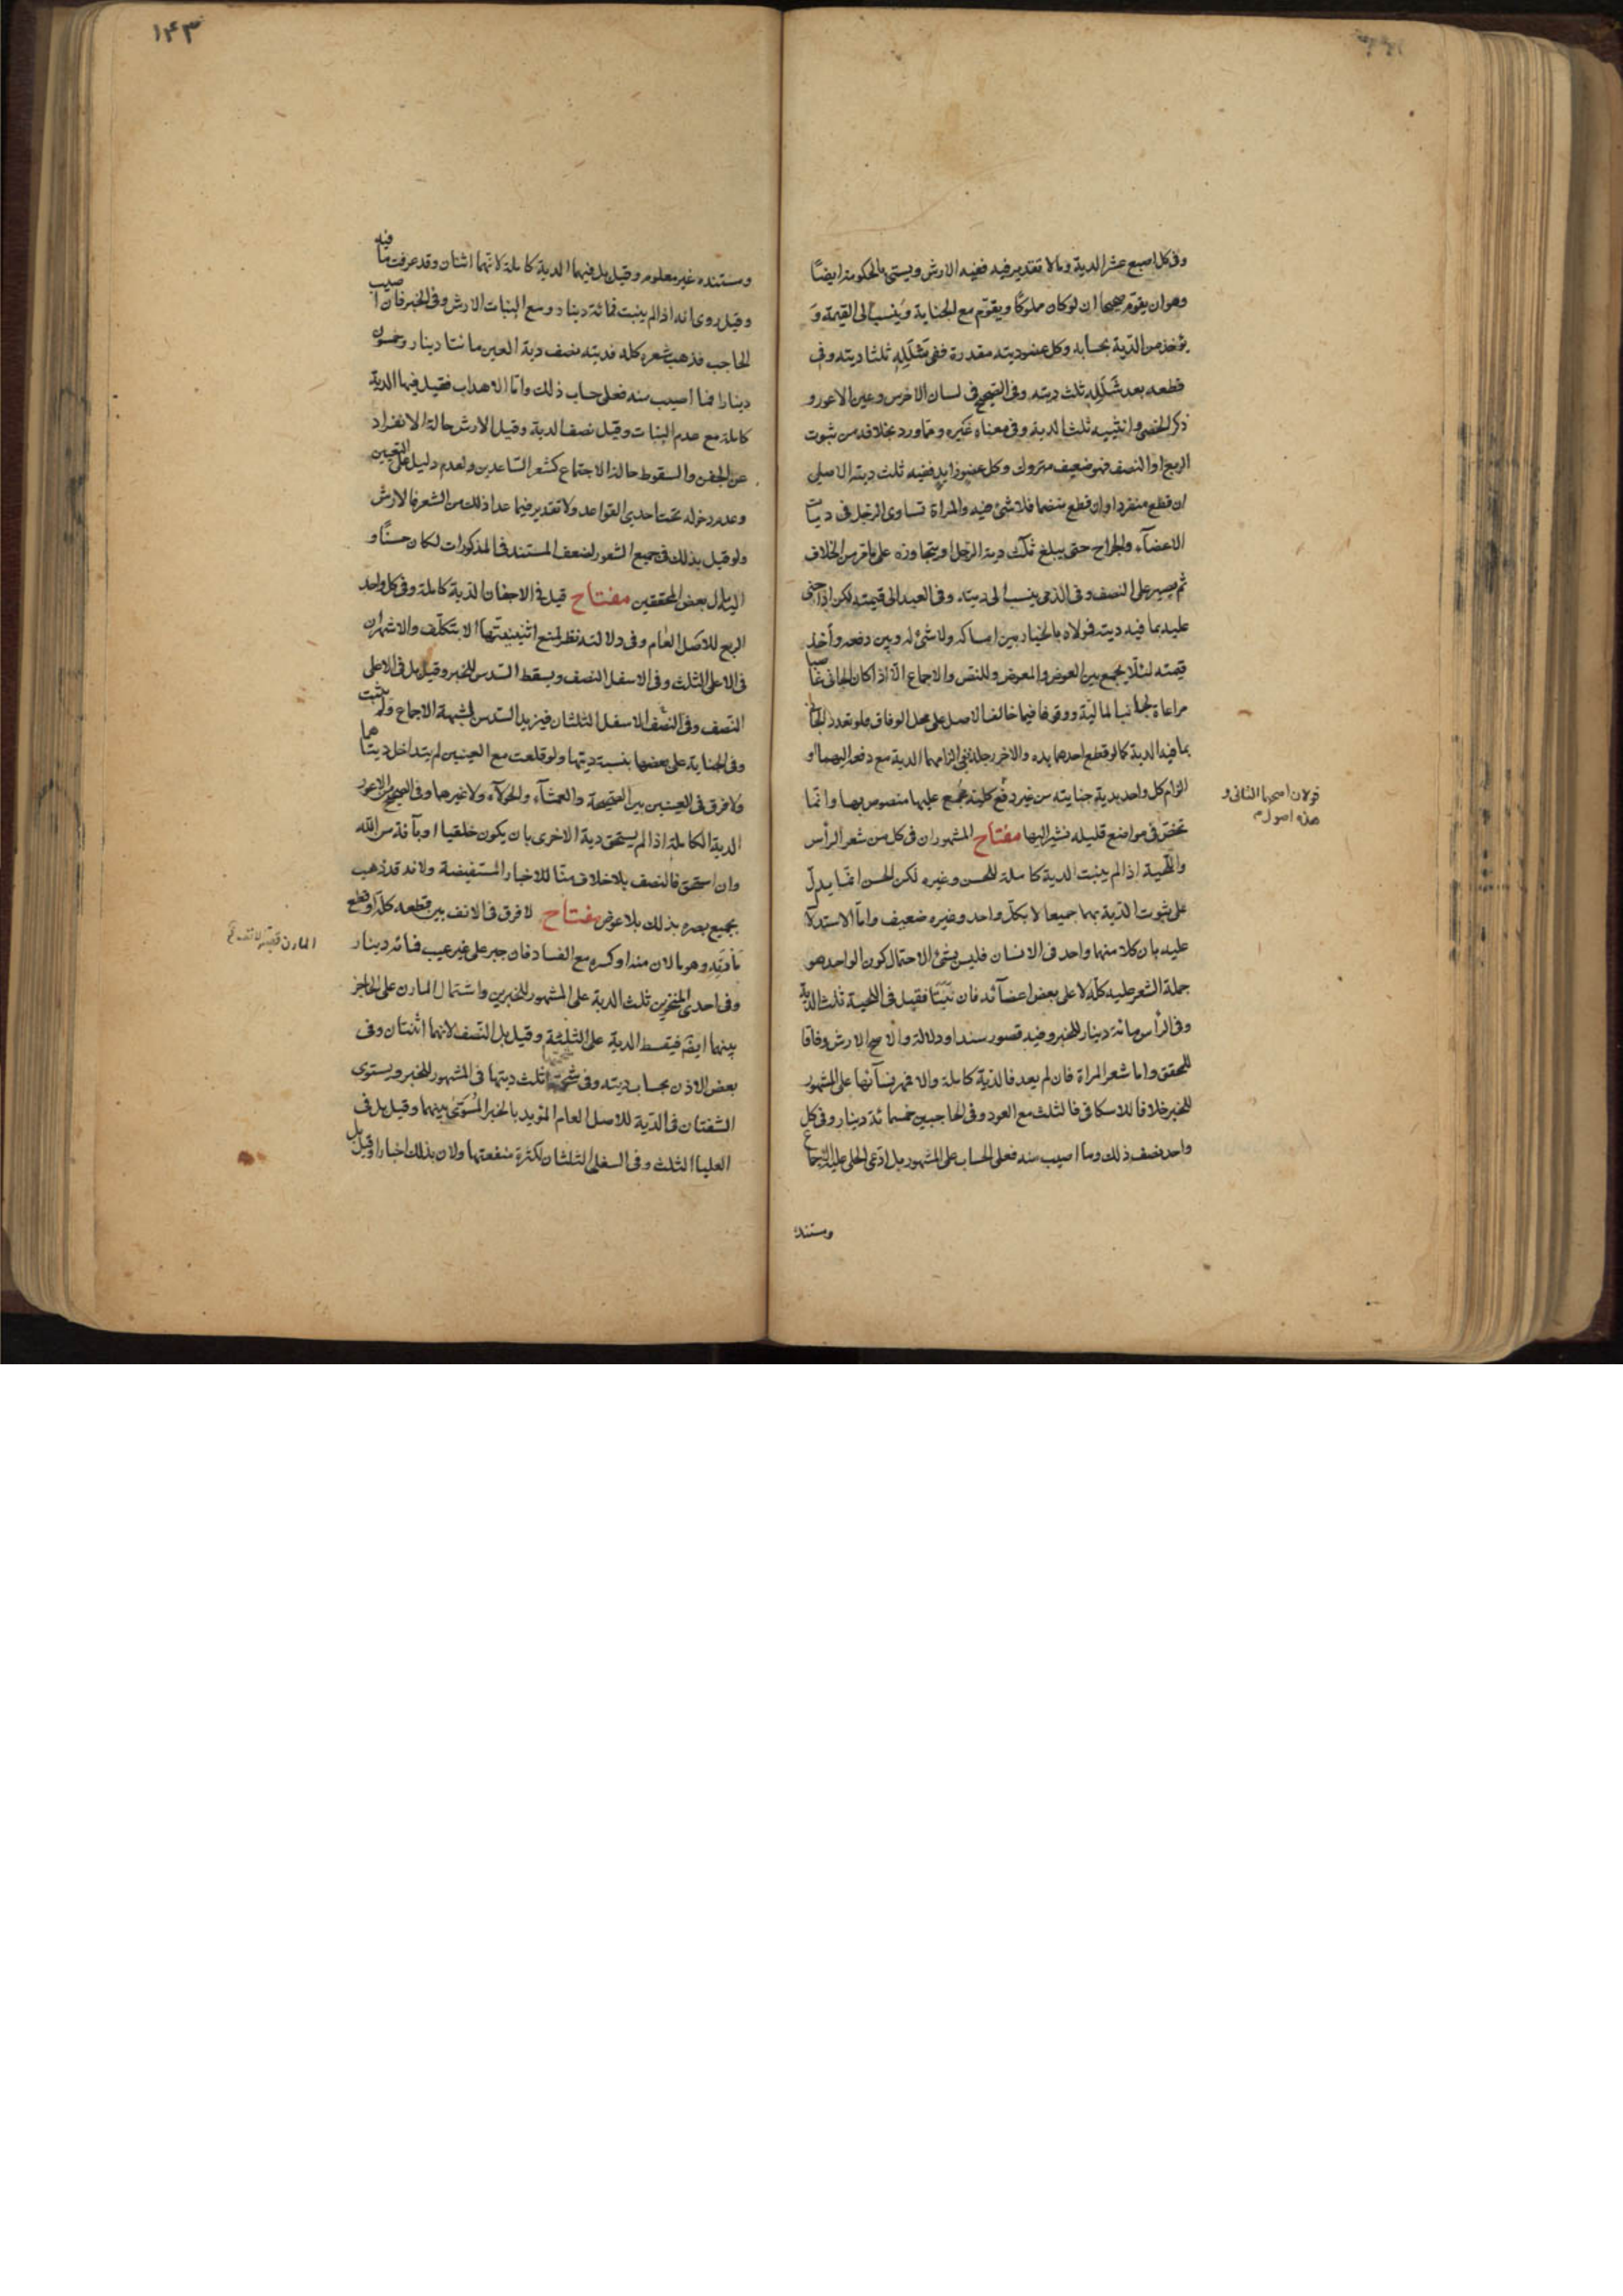 وفى كل اصبع عشر الدية وما لا تقدير فيه ففيه الارش ويسمى بالحكومة ايضًا
وهو ان يقوّم صحيحا ان لو كان مملوكًا ويقوّم مع الجناية ويُنسب الى القيمة وَ
يؤخذ من الدّية بحسابه وكل عضو ديته مقدرة ففى شَلَلِه ثلثا ديته وفى
قطعه بعد شَلَلِه ثلث ديته وفى الصّحيح فى لسان الاخرس وعين الاعور و
ذكر الخصى وانثييه ثلث الدية وفى معناه غيره وما ورد بخلافه من ثبوت
الربع او النصف فهو ضعيف متروك وكل عضو زايد ففيه ثلث دية الاصلى
ان قطع منفردا وان قطع منضما فلا شئ فيه والمراة تساوى الرجل فى ديات
الاعضآء والجراح حتى يبلغ ثلث دية الرّجل او يتجاوزه على ما مر من الخلاف
ثم يصير على النصف وفى الذمى ينسب الى ديته وفى العبد الى قيمته لكن اذا جنى
عليه بما فيه ديته فمولاه بالخيار بين امساكه ولا شئ له وبين دفعه وأخذ
قيمته لئلّا يجمع بين العوض والمعوض وللنص والاجماع الّا اذا كان الجانى غاصبا
مراعاة لجانب المالية ووقوفا فيما خالف الاصل على محل الوفاق فلو تعدد الجانى
بما فيه الدية كما لو قطع احدهما يده والاخر رجله ففى الزامهما الدية مع دفعه اليهما او
الزام كل واحد بدية جنايته من غير دفع كلية مجمع عليها منصوص بها وانّما
قولان اصحهما الثانى و
هذه اصول
تخصّ فى مواضع قليله نشير اليها مفتاح المشهور ان فى كل من شعر الرأس
واللّحية اذا لم ينبت الدية كاملة للحسن وغيره لكن الحسن انّما يدلّ
على ثبوت الدّية بهما جميعا لا بكلّ واحد وغيره ضعيف وامّا الاستدلال
عليه بان كلا منهما واحد فى الانسان فليس بشئ لاحتمال كون الواحد هو
جملة الشعر عليه كلّه لا على بعض اعضآئه فان نَبَتَا فقيل فى اللحية ثلث الدية
وفى الرأس مائة دينار للخبر وفيه قصور سندا ودلالة والاصح الارش وفاقا
للمحقق واما شعر المراة فان لم يعد فالدّية كاملة والا فمهر نسآئها على المشهور
للخبر خلافا للاسكافى فالثلث مع العود وفى الحاجبين خمسمائة دينار وفى كل
واحد نصف ذلك وما اصيب منه فعلى الحساب على المشهور بل ادّعى الحلى عليه الاجماع
ومستنده
١٤٣
ومستنده غير معلوم وقيل بل فيهما الدية كاملة لانّهما اثنان وقد عرفت ما فيه
وقيل روى انه اذا لم ينبت فمائة دينار ومع النبات الارش وفى الخبر فان اصيب
الحاجب فذهب شعره كله فديته نصف دية العين مائتا دينار وخمسون
دينارا فما اصيب منه فعلى حساب ذلك وامّا الاهداب فقيل فيها الدية
كاملة مع عدم النبات وقيل نصف الدية وقيل الارش حالة الانفراد
عن الجفن والسقوط حالة الاجتماع كشعر السّاعدين ولعدم دليل على التعيين
وعدم دخوله تحت احدى القواعد ولا تقدير فيما عدا ذلك من الشعر فالارش
ولو قيل بذلك فى جميع الشعور لضعف المستند فى المذكورات لكان حسنًا و
اليه مال بعض المحققين مفتاح قيل فى الاجفان الدّية كاملة وفى كل واحد
الربع للاصل العام وفى دلالته نظر لمنع اثنينيتها الا بتكلّف والاشهر ان
فى الاعلى الثلث وفى الاسفل النصف ويسقط السّدس للخبر وقيل بل فى الاعلى
النّصف وفى النّصف الاسفل الثلثان فيزيد السّدس لشبهة الاجماع ولم يثبت
وفى الجناية على بعضها بنسبة ديتها ولو قلعت مع العينين لم يتداخل ديتاهما
ولا فرق فى العينين بين الصّحيحة والعمشآء والحولآء ولا غيرها وفى الصحيح من الاعور
الدية الكاملة اذا لم يستحق دية الاخرى بان يكون خلقيا او بآفة من الله
وان استحق فالنصف بلا خلاف منّا للاخبار المستفيضة ولانه قد ذهب
بجميع بصره بذلك بلا عوض مفتاح لا فرق فى الانف بين قطعه كله او قطع
مارنه وهو ما لان منه او كسره مع الفساد فان جبر على غير عيب فمائه دينار
وفى احدى المنخرين ثلث الدية على المشهور للخبرين واشتمال المارن على الحاجز
بينهما ايضَ فيقسط الدية على الثلثة وقيل بل النّصف لانهما اثنتان وفى
بعض الاذن بحساب ديته وفى شحمتها ثلث ديتها فى المشهور للخبر ويستوى
الشفتان فى الدّية للاصل العام المؤيد بالخبر المُسَوّى بينهما وقيل بل فى
العليا الثلث وفى السفلى الثلثان لكثرة منفعتها ولان بذلك اخبارا وقيل بل
المارن